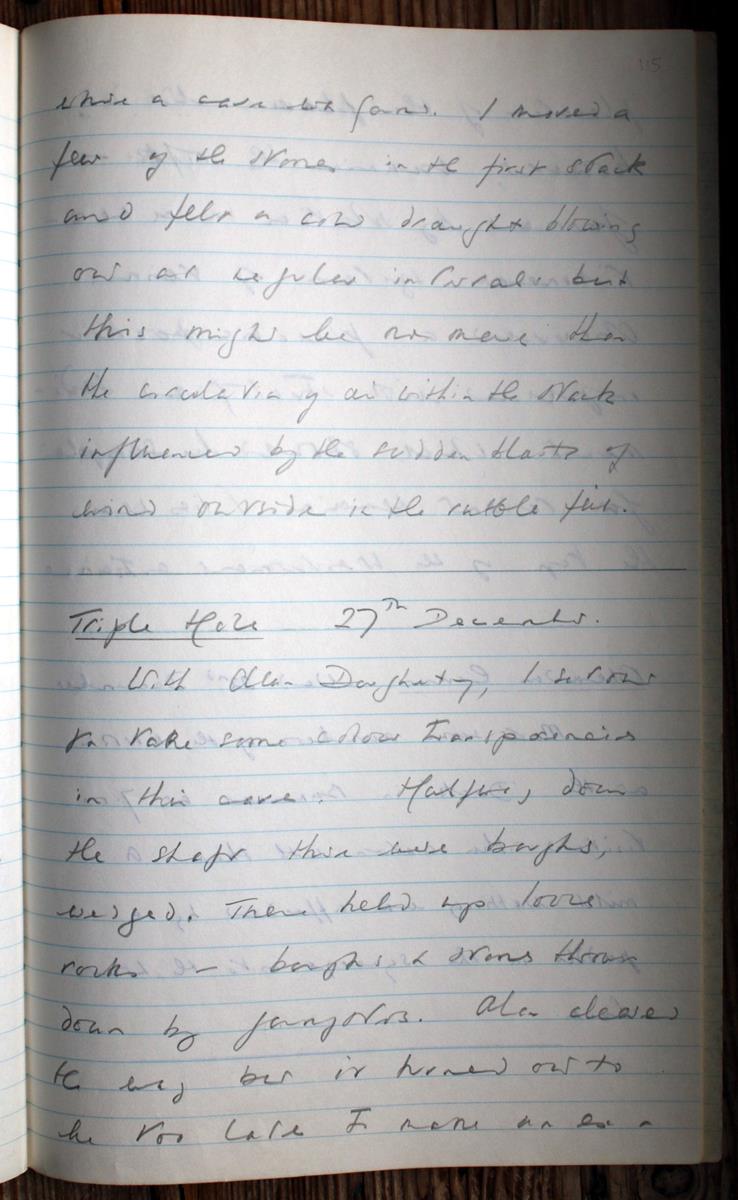 115
where a cave was found. I moved a
few of the stones in the first stack
and felt a cold draught blowing
out at regular intervals but
this might be not more than
the circulation of air within the stack
influenced by the sudden blasts of
wind outside in the rubble fill.
Triple Hole 27th December.
With Alan Dougherty, I set out
to take some colour transparencies
in this cave. Halfway down
the shaft there were boughs,
wedged. These held up loose
rocks – boughs & stones thrown
down by youngsters. Alan cleared
the way but it turned out to
be too late to make an ex-